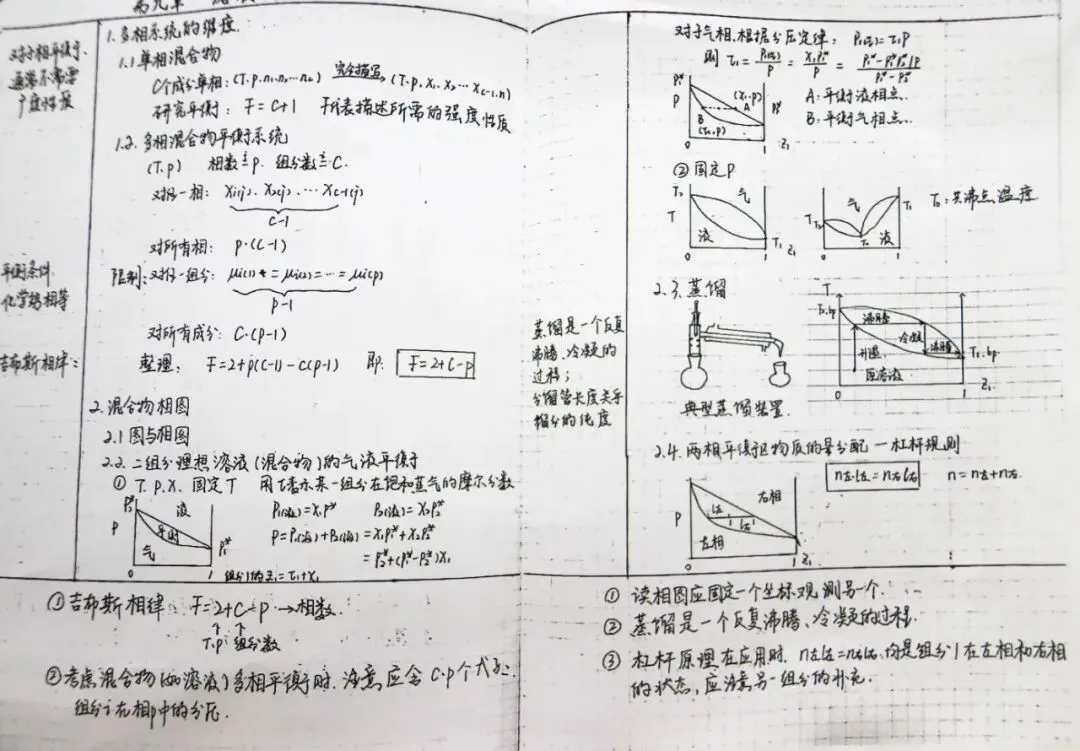 第九章
对于相平衡,
通常不需要
广度性质
1.多相系统的维度.
1.1 单相混合物
C个成分单相:(T.p.n₁.n₂…nc) 完全描写→ (T.p.x₁.x₂…xc-1.n)
研究平衡: F=C+1 F代表描述所需的强度性质
1.2.多相混合物平衡系统
(T.p) 相数≐p. 组分数≐C.
对任一相: x₁(j).x₂(j).…xc-1(j)
c-1
对所有相: p·(c-1)
平衡条件
化学势相等
限制:对任一组分: μi(1) = μi(2)=…=μi(p)
p-1
对所有成分: C·(p-1)
吉布斯相律:
整理, F=2+p(c-1)-c(p-1) 即: F=2+C-p
2.混合物相图
2.1 图与相图
2.2.二组分理想溶液(混合物)的气液平衡
① T.p.x. 固定T 用τ表示某一组分在饱和蒸气的摩尔分数
P₂* p 液 平衡 气 P₁* 0 1
P₁(液)=x₁P₁* P₂(液)=x₂P₂*
P=P₁(液)+P₂(液)=x₁P₁*+x₂P₂*
=P₂*+(P₁*-P₂*)x₁
组分1的z₁=τ₁+x₁
①吉布斯相律: F=2+C-p→相数.
T.p 组分数
②考虑混合物(如溶液)多相平衡时.注意应含C·p个式子:
组分i在相p中的分压.
对于气相,根据分压定律: P₁(气)=τ₁P
则 τ₁=P₁(气)/P=x₁P₁*/P=
P₁* P (x₁.p) A B (τ₁.p) P₂* 0 1 z₁
A:平衡液相点.
B:平衡气相点.
②固定P
T₂ 气 T 液 T₁ 0 1 z₁
T T₂ 气 T₁ 液 0 1
T₀:共沸点温度
2.3.蒸馏
蒸馏是一个反复
沸腾、冷凝的
过程;
分馏管长度关乎
馏分的纯度
典型蒸馏装置.
T T₂.bp 沸腾 冷凝 沸腾 T₁.bp 升温 原溶液 0 1 z₁
2.4.两相平衡区物质的量分配—杠杆规则
n左l左=n右l右 n=n左+n右.
P l左 l右 右相 左相 0 1 z₁
① 读相图应固定一个坐标观测另一个.
② 蒸馏是一个反复沸腾、冷凝的过程.
③ 杠杆原理在应用时, n左l左=n右l右,均是组分1在左相和右相
的状态,应注意另一组分的补充.